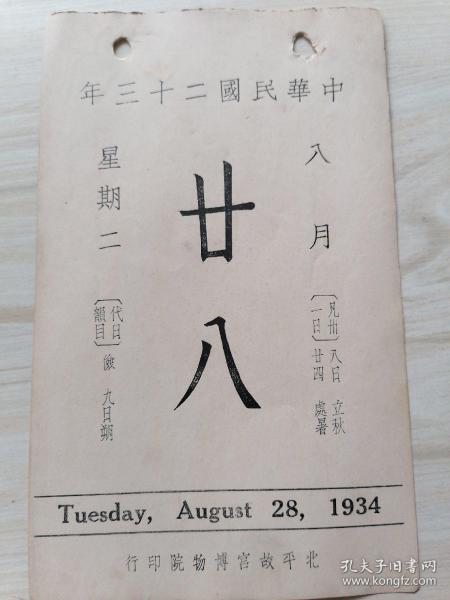 中華民國二十三年
八月
廿八
星期二
〔凡卅一日〕八日立秋
廿四處暑
〔代日韻目〕儉 九日朔
Tuesday, August 28, 1934
北平故宮博物院印行
孔夫子旧书网
www.kongfz.com